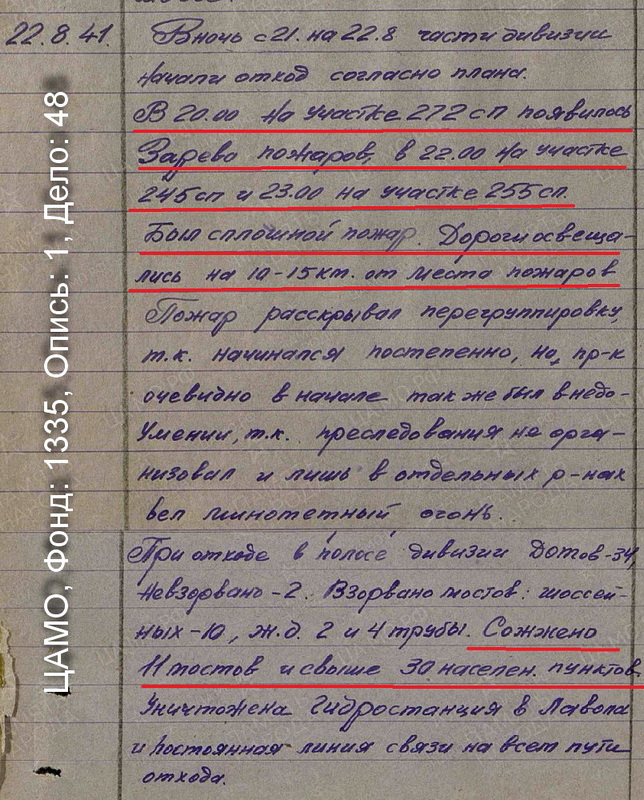 22.8.41. В ночь с 21. на 22.8 части дивизии
начали отход согласно плана.
В 20.00 на участке 272 сп появилось
Зарево пожаров, в 22.00 на участке
245 сп и 23.00 на участке 255 сп.
Был сплошной пожар. Дороги освеща-
лись на 10-15 км. от места пожаров
Пожар расскрывал перегруппировку,
т.к. начинался постепенно, но, пр-к
очевидно в начале также был в недо-
умении, т.к. преследования не орга-
низовал и лишь в отдельных р-нах
вел минометный огонь.
При отходе в полосе дивизии Дотов-34,
Невзорвано-2. Взорвано мостов: шоссей-
ных-10, ж.д. 2 и 4 трубы. Сожжено
11 мостов и свыше 30 населен. пунктов.
Уничтожена Гидростанция в Лавола
и постоянная линия связи на всем пути
отхода.
ЦАМО, Фонд: 1335, Опись: 1, Дело: 48